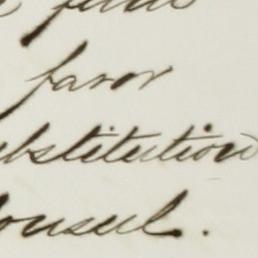 favor
ubstitution
ounsel.